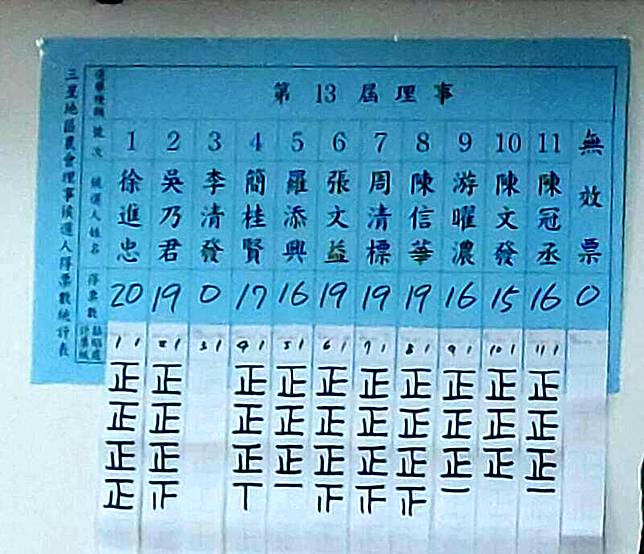 三星地區農會理事候選人得票數統計表
選舉種類 第 13 屆理事
號次 1 2 3 4 5 6 7 8 9 10 11 無效票
候選人姓名 徐進忠 吳乃君 李清發 簡桂賢 羅添興 張文益 周清標 陳信華 游曜濃 陳文發 陳冠丞
得票數 20 19 0 17 16 19 19 19 16 15 16 0
黏貼處計票紙
1 1 2 1 3 1 4 1 5 1 6 1 7 1 8 1 9 1 10 1 11 1
正 正 正 正 正 正 正 正 正 正
正 正 正 正 正 正 正 正 正 正
正 正 正 正 正 正 正 正 正 正
正 𤴓 丅 一 𤴓 𤴓 𤴓 一 一